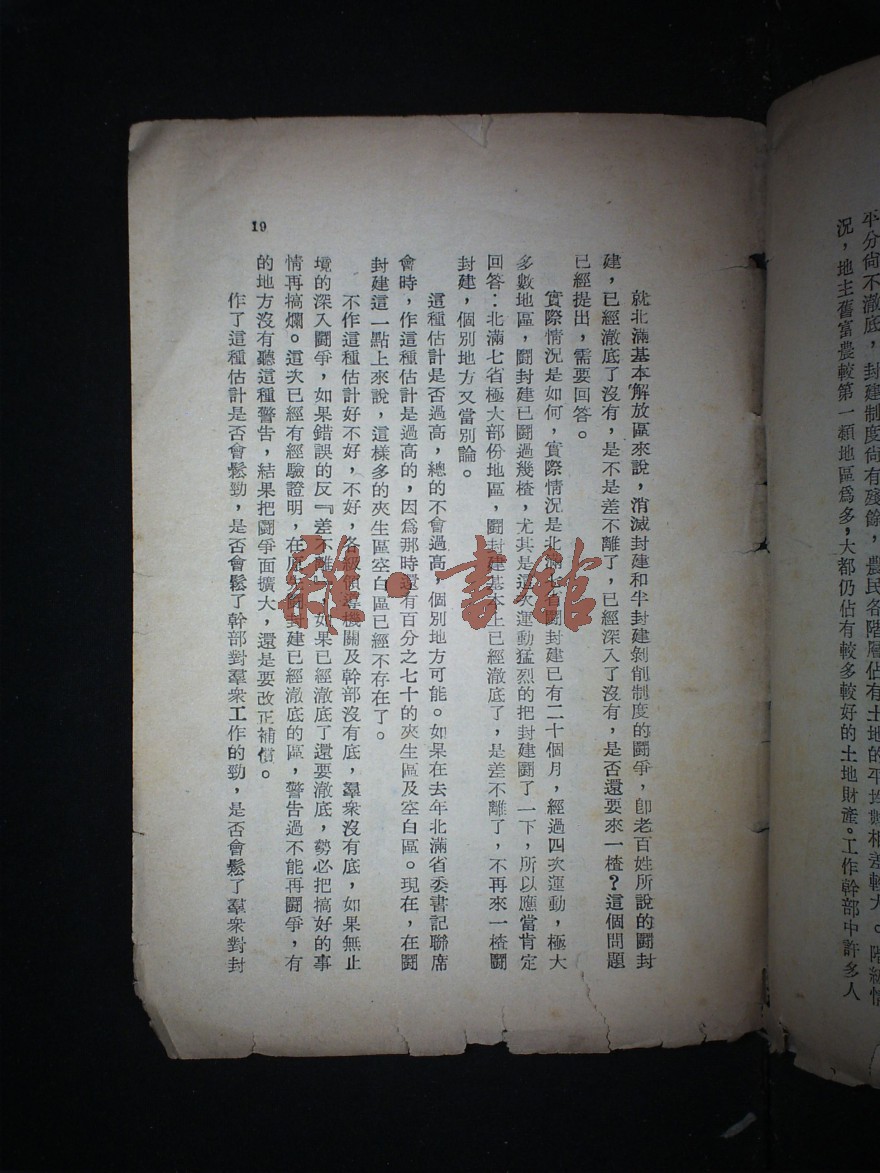 平分尙不澈底，封建制度尙有殘餘，農民各階層佔有土地的平均數相差較大。階級情
況，地主舊富農較第一類地區爲多，大都仍佔有較多較好的土地財產。工作幹部中許多人
就北滿基本解放區來說，消滅封建和半封建剝削制度的鬭爭，卽老百姓所說的鬭封
建，已經澈底了沒有，是不是差不離了，已經深入了沒有，是否還要來一楂？這個問題
已經提出，需要回答。
實際情況是如何，實際情況是北滿七省鬭封建已有二十個月，經過四次運動，極大
多數地區，鬭封建已鬭過幾楂，尤其是這次運動猛烈的把封建鬭了一下，所以應當肯定
回答：北滿七省極大部份地區，鬭封建基本上已經澈底了，是差不離了，不再來一楂鬭
封建，個別地方又當別論。
這種估計是否過高，總的不會過高，個別地方可能。如果在去年北滿省委書記聯席
會時，作這種估計是過高的，因爲那時還有百分之七十的夾生區及空白區。現在，在鬭
封建這一點上來說，這樣多的夾生區空白區已經不存在了。
不作這種估計好不好，不好，各級領導機關及幹部沒有底，羣衆沒有底，如果無止
境的深入鬭爭，如果錯誤的反『差不離』，如果已經澈底了還要澈底，勢必把搞好的事
情再搞爛。這次已經有經驗證明，在原先鬭封建已經澈底的區，警告過不能再鬭爭，有
的地方沒有聽這種警告，結果把鬭爭面擴大，還是要改正補償。
作了這種估計是否會鬆勁，是否會鬆了幹部對羣衆工作的勁，是否會鬆了羣衆對封
19
雜·書館